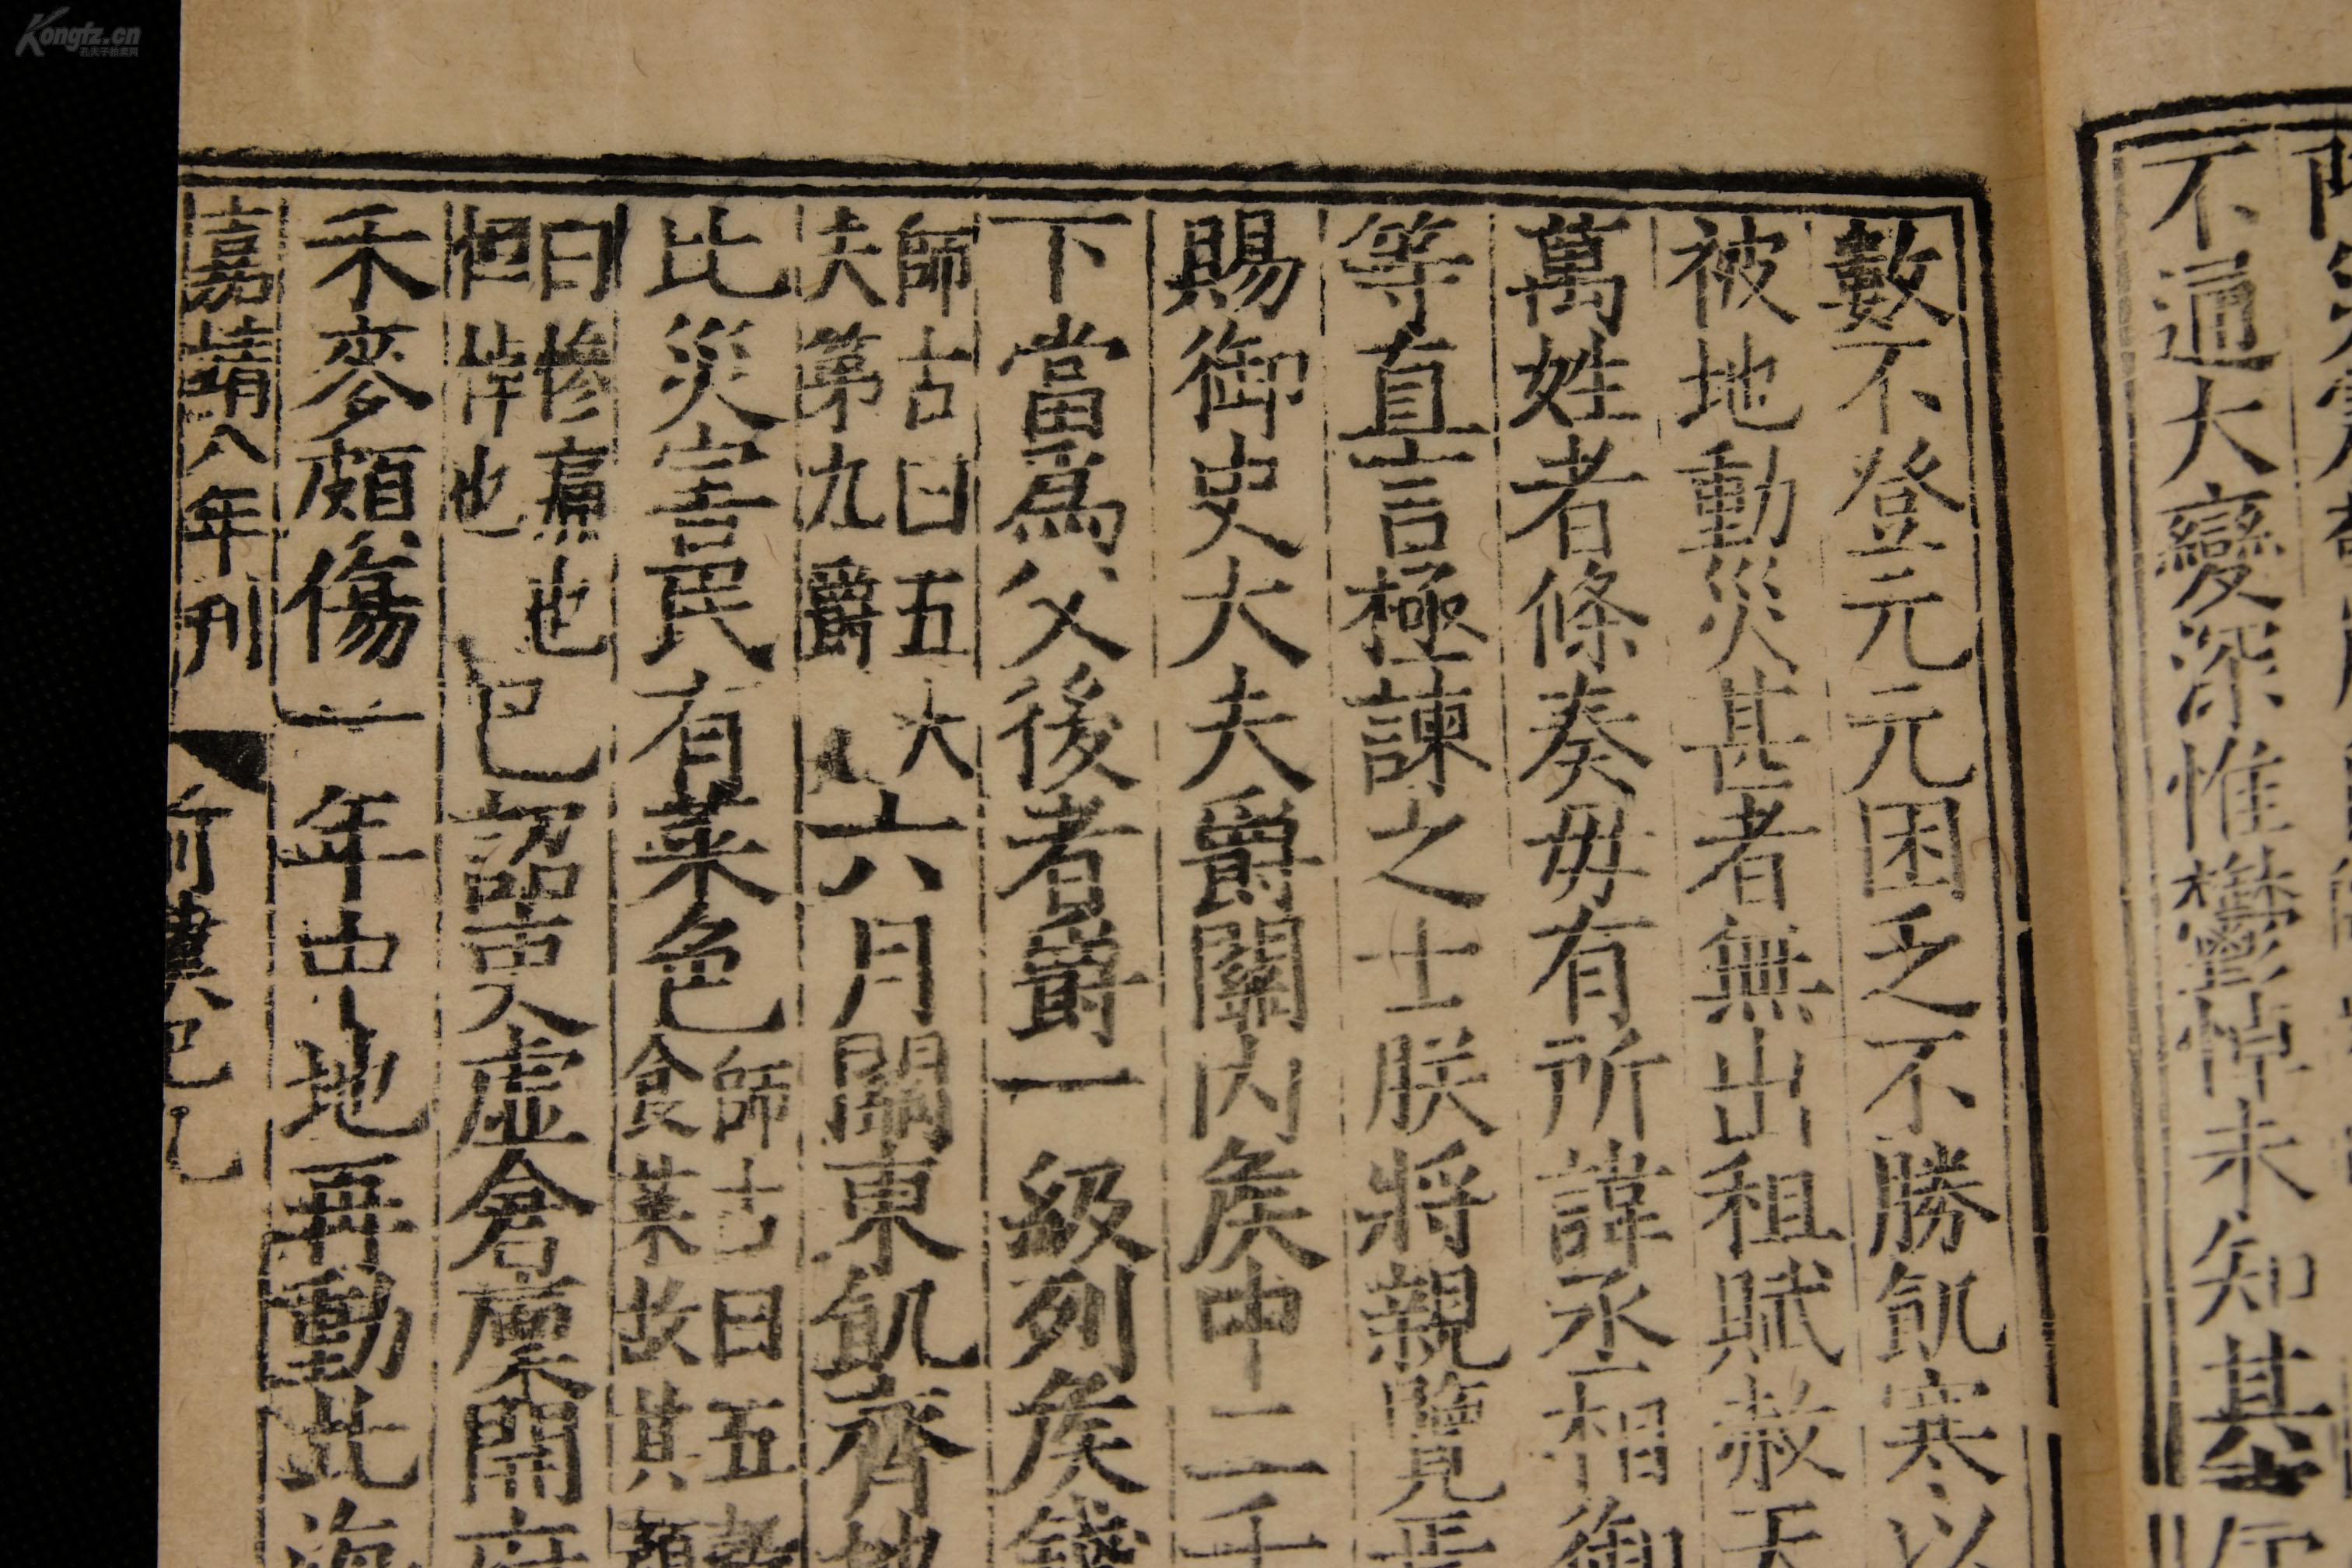 不通大變深惟鬱悼未知其
數不登元元困乏不勝飢寒以
被地動災甚者無出租賦赦天
萬姓者條奏毋有所諱丞相御
等直言極諫之士朕將親覽焉
賜御史大夫爵關內矦中二千
下當爲父後者爵一級列矦錢
師古曰五大
夫第九爵
六月關東飢齊地
比災害民有菜色
師古曰五穀
食菜故其顔
曰慘痛也
怛悼也
已詔吏虛倉廩開府
禾麥頗傷一年中地再動北海
嘉靖八年刊
前漢紀九
Kongfz.cn